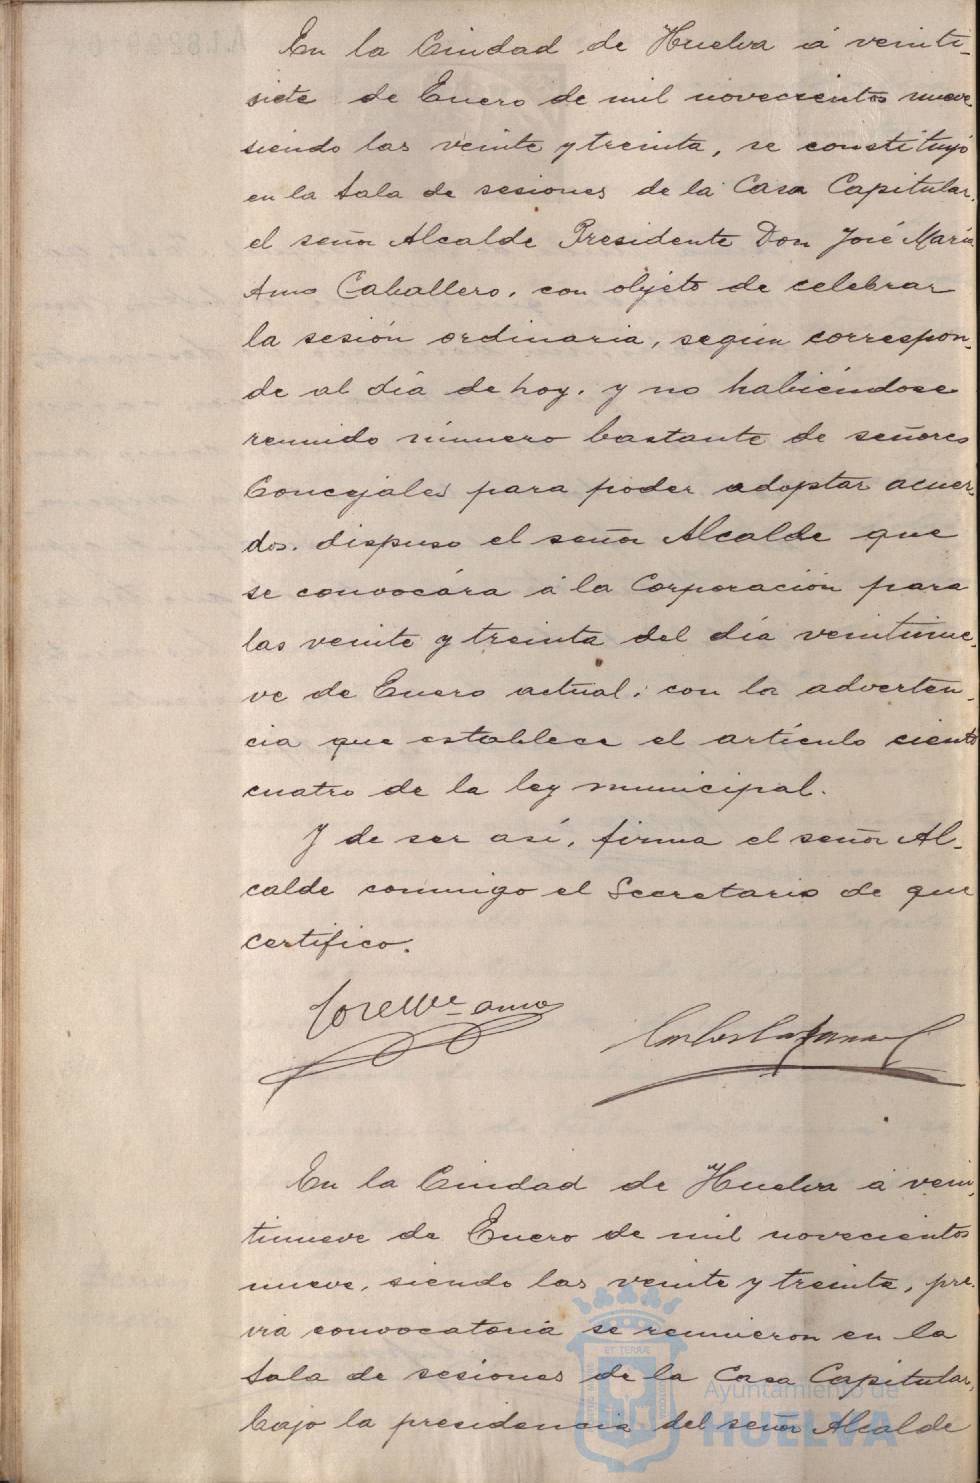 En la Ciudad de Huelva á veinti-
siete de Enero de mil novecientos nueve
siendo las veinte y treinta, se constituyó
en la Sala de sesiones de la Casa Capitular.
el señor Alcalde Presidente Don José María
Amo Caballero, con objeto de celebrar
la sesión ordinaria, según correspon-
de al día de hoy. y no habiéndose
reunido número bastante de señores
Concejales para poder adoptar acuer-
dos. dispuso el señor Alcalde que
se convocára á la Corporación para
las veinte y treinta del día veintinue-
ve de Enero actual, con la adverten-
cia que establece el artículo ciento
cuatro de la ley municipal.
Y de ser así, firma el señor Al-
calde conmigo el Secretario de que
certifico.
José Mª Amo
En la Ciudad de Huelva á vein-
tinueve de Enero de mil novecientos
nueve, siendo las veinte y treinta, pre-
via convocatoria se reunieron en la
Sala de sesiones de la Casa Capitular,
bajo la presidencia del señor Alcalde
Ayuntamiento de
HUELVA